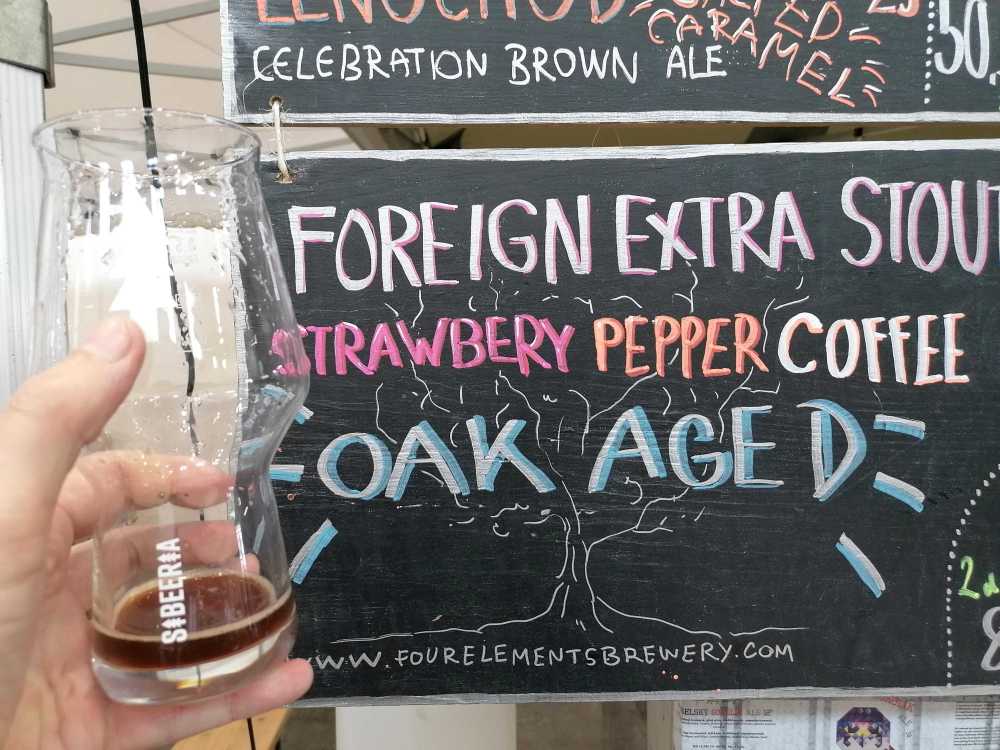 SALTED
CARAMEL
CELEBRATION BROWN ALE
50.
FOREIGN EXTRA STOUT
STRAWBERY PEPPER COFFEE
OAK AGED
WWW.FOURELEMENTSBREWERY.COM
SIBEERIA